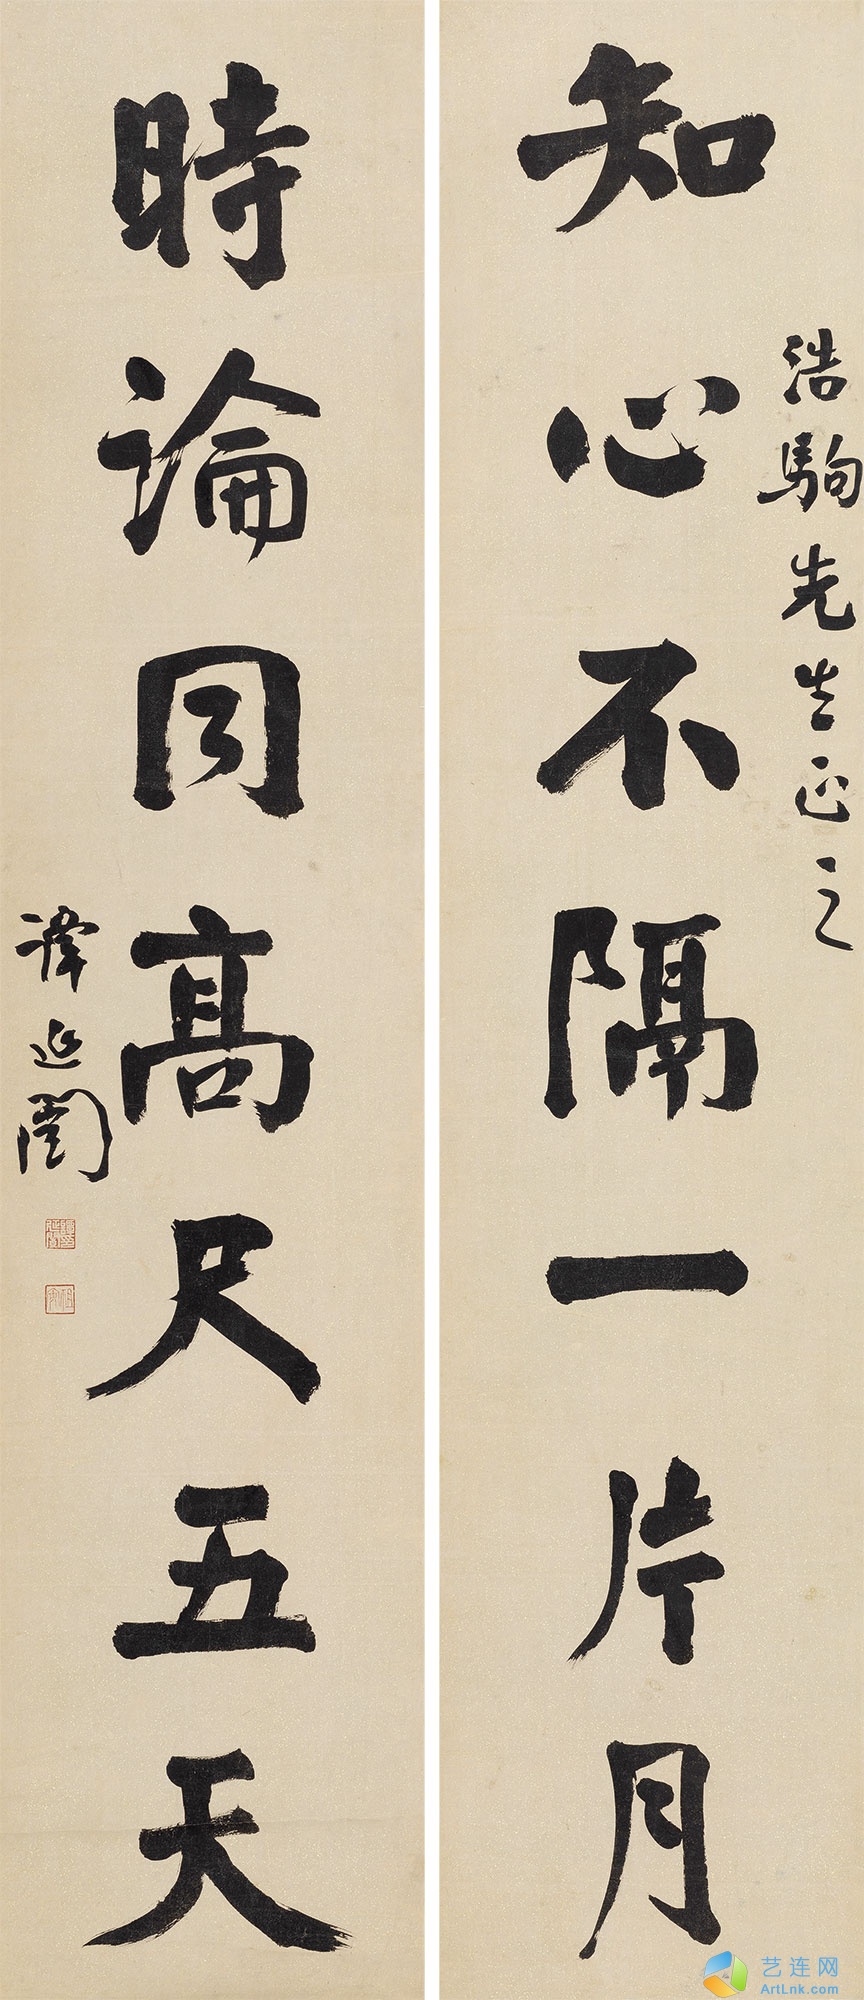 浩駒先生正之
知心不隔一片月
時論同高尺五天
譚延闓
艺连网
ArtLnk.com